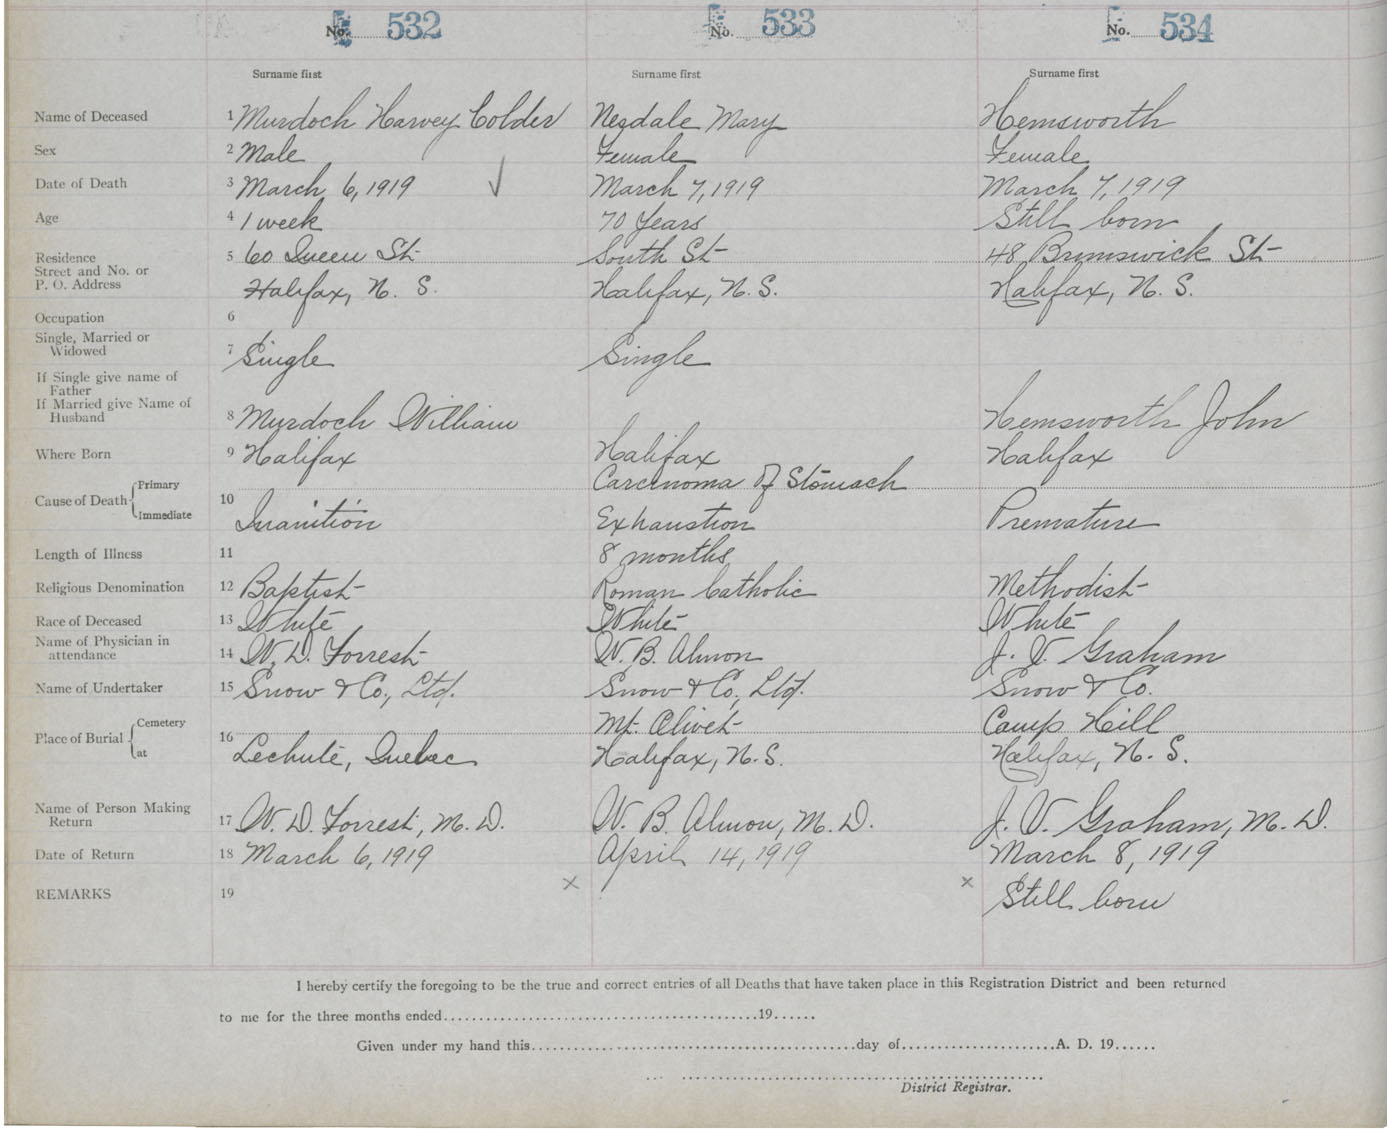 No. 532 No. 533 No. 534
Surname first Surname first Surname first
Name of Deceased 1 Murdoch Harvey Colder Nesdale Mary Hemsworth
Sex 2 Male Female Female
Date of Death 3 March 6, 1919 March 7, 1919 March 7, 1919
Age 4 1 week 70 Years Still born
Residence 5 60 Queen St South St 48 Brunswick St
Street and No. or
P. O. Address Halifax, N. S. Halifax, N. S. Halifax, N. S.
Occupation 6
Single, Married or
Widowed 7 Single Single
If Single give name of
Father
If Married give Name of
Husband 8 Murdoch William Hemsworth John
Where Born 9 Halifax Halifax Halifax
Primary Carcinoma of Stomach
Cause of Death 10
Immediate Inanition Exhaustion Premature
Length of Illness 11 8 months
Religious Denomination 12 Baptist Roman Catholic Methodist
Race of Deceased 13 White White White
Name of Physician in
attendance 14 W. D. Forrest W. B. Almon J. V. Graham
Name of Undertaker 15 Snow & Co., Ltd. Snow & Co., Ltd. Snow & Co.
Cemetery Mt. Olivet Camp Hill
Place of Burial 16
at Lechute, Quebec Halifax, N. S. Halifax, N. S.
Name of Person Making
Return 17 W. D. Forrest, M. D. W. B. Almon, M. D. J. V. Graham, M. D.
Date of Return 18 March 6, 1919 April 14, 1919 March 8, 1919
REMARKS 19 Still born
I hereby certify the foregoing to be the true and correct entries of all Deaths that have taken place in this Registration District and been returned
to me for the three months ended 19
Given under my hand this day of A. D. 19
District Registrar.